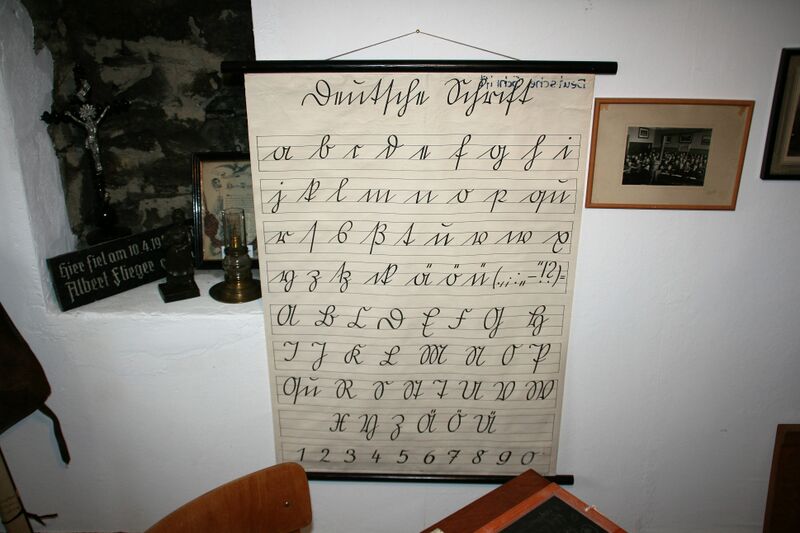 Deutsche Schrift
Deutsche Schrift
a b c d e f g h i
j k l m n o p qu
r ſ s ß t u v w x
y z tz ck ä ö ü (.,;:„–“!?)=
A B C D E F G H
I J K L M N O P
Qu R S St T U V W
X Y Z Ä Ö Ü
1 2 3 4 5 6 7 8 9 0
Hier fiel am 10.4.19
Albert Flieger